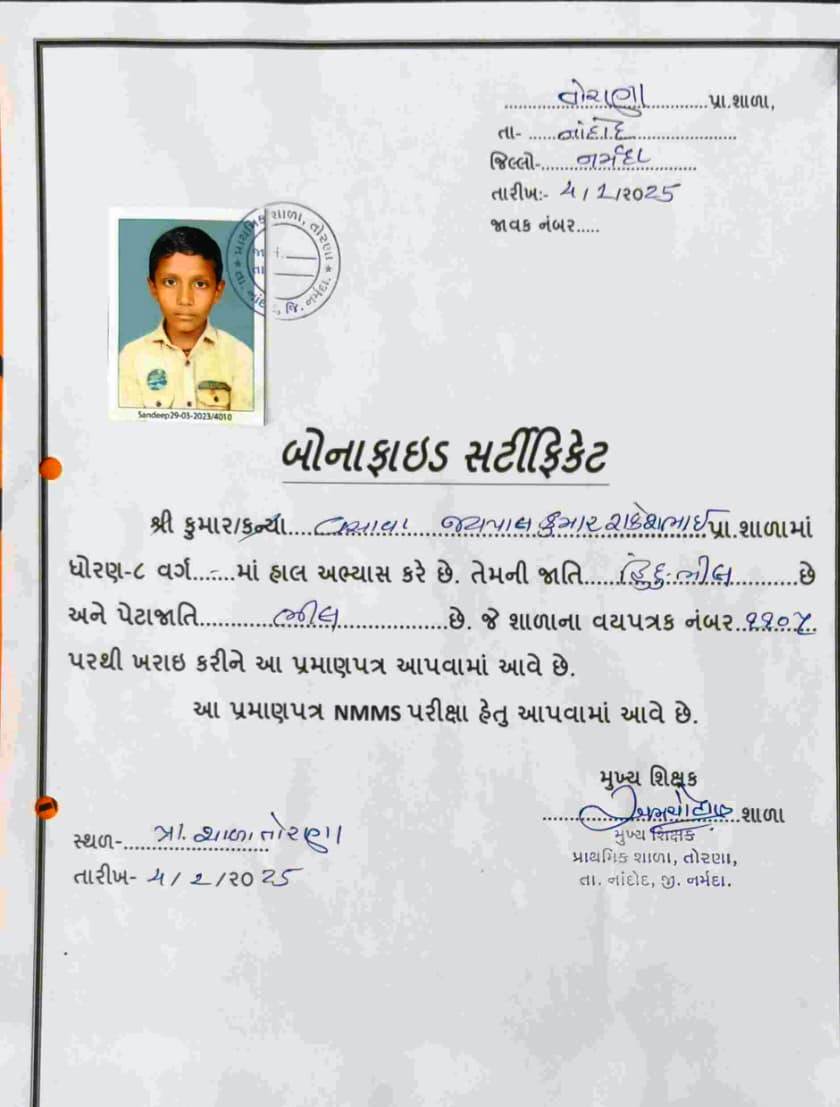 તોરણા પ્રા.શાળા,
તા- નાંદોદ
જિલ્લો- નર્મદા
તારીખ:- 4/1/2025
જાવક નંબર.....
પ્રાથમિક શાળા, તોરણા * તા. નાંદોદ, જિ. નર્મદા. *
જા. નં.
તા
Sandeep29-03-2023/4010
બોનાફાઇડ સર્ટીફિકેટ
શ્રી કુમાર/કન્યા....વસાવા જયપાલકુમાર રાકેશભાઈ પ્રા.શાળામાં
ધોરણ-૮ વર્ગ...-...માં હાલ અભ્યાસ કરે છે. તેમની જાતિ....હિંદુ-ભીલ..........છે
અને પેટાજાતિ............ભીલ..................છે. જે શાળાના વયપત્રક નંબર..૧૧૦૫..
પરથી ખરાઇ કરીને આ પ્રમાણપત્ર આપવામાં આવે છે.
આ પ્રમાણપત્ર NMMS પરીક્ષા હેતુ આપવામાં આવે છે.
મુખ્ય શિક્ષક
શાળા
મુખ્ય શિક્ષક
પ્રાથમિક શાળા, તોરણા,
તા. નાંદોદ, જી. નર્મદા.
સ્થળ- પ્રા. શાળા તોરણા
તારીખ- 4/1/2025